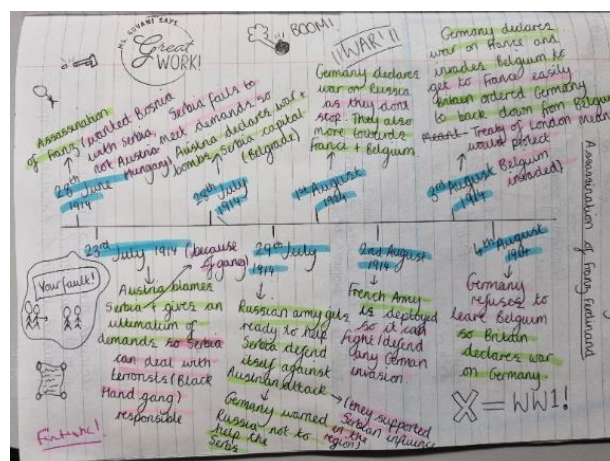 MS GOVANI SAYS
Great
WORK!
BOOM!
!!WAR!!
Assassination
of Franz (wanted Bosnia
with Serbia,
not Austria
Hungary)
28th June
1914
Serbia fails to
meet demands so
Austria declares war +
bombs Serbia capital
(Belgrade)
28th July
1914
Germany declares
war on Russia
as they dont
stop. They also
move towards
France + Belgium.
1st August
1914
Germany declares
war on France and
invades Belgium to
get to France easily
Britain ordered Germany
to back down from Belgium
Treaty of London
would protect
Belgium
invaded)
3rd August
1914
Assassination of Franz Ferdinand
23rd July 1914 (because
of gang)
Austria blames
Serbia + gives an
ultimatum of
demands so Serbia
can deal with
terrorists (Black
Hand gang)
responsible
29th July
1914
Russian army gets
ready to help
Serbia defend
itself against
Austrian attack
(they supported
Serbian influence
in the
region)
Germany warned
Russia not to
help the
Serbs
2nd August
1914
French Army
is deployed
so it can
fight/defend
any German
invasion.
4th August
1914
Germany
refuses to
leave Belgium
so Britain
declares war
on Germany.
X = WW1!
Your fault!
Fantastic!